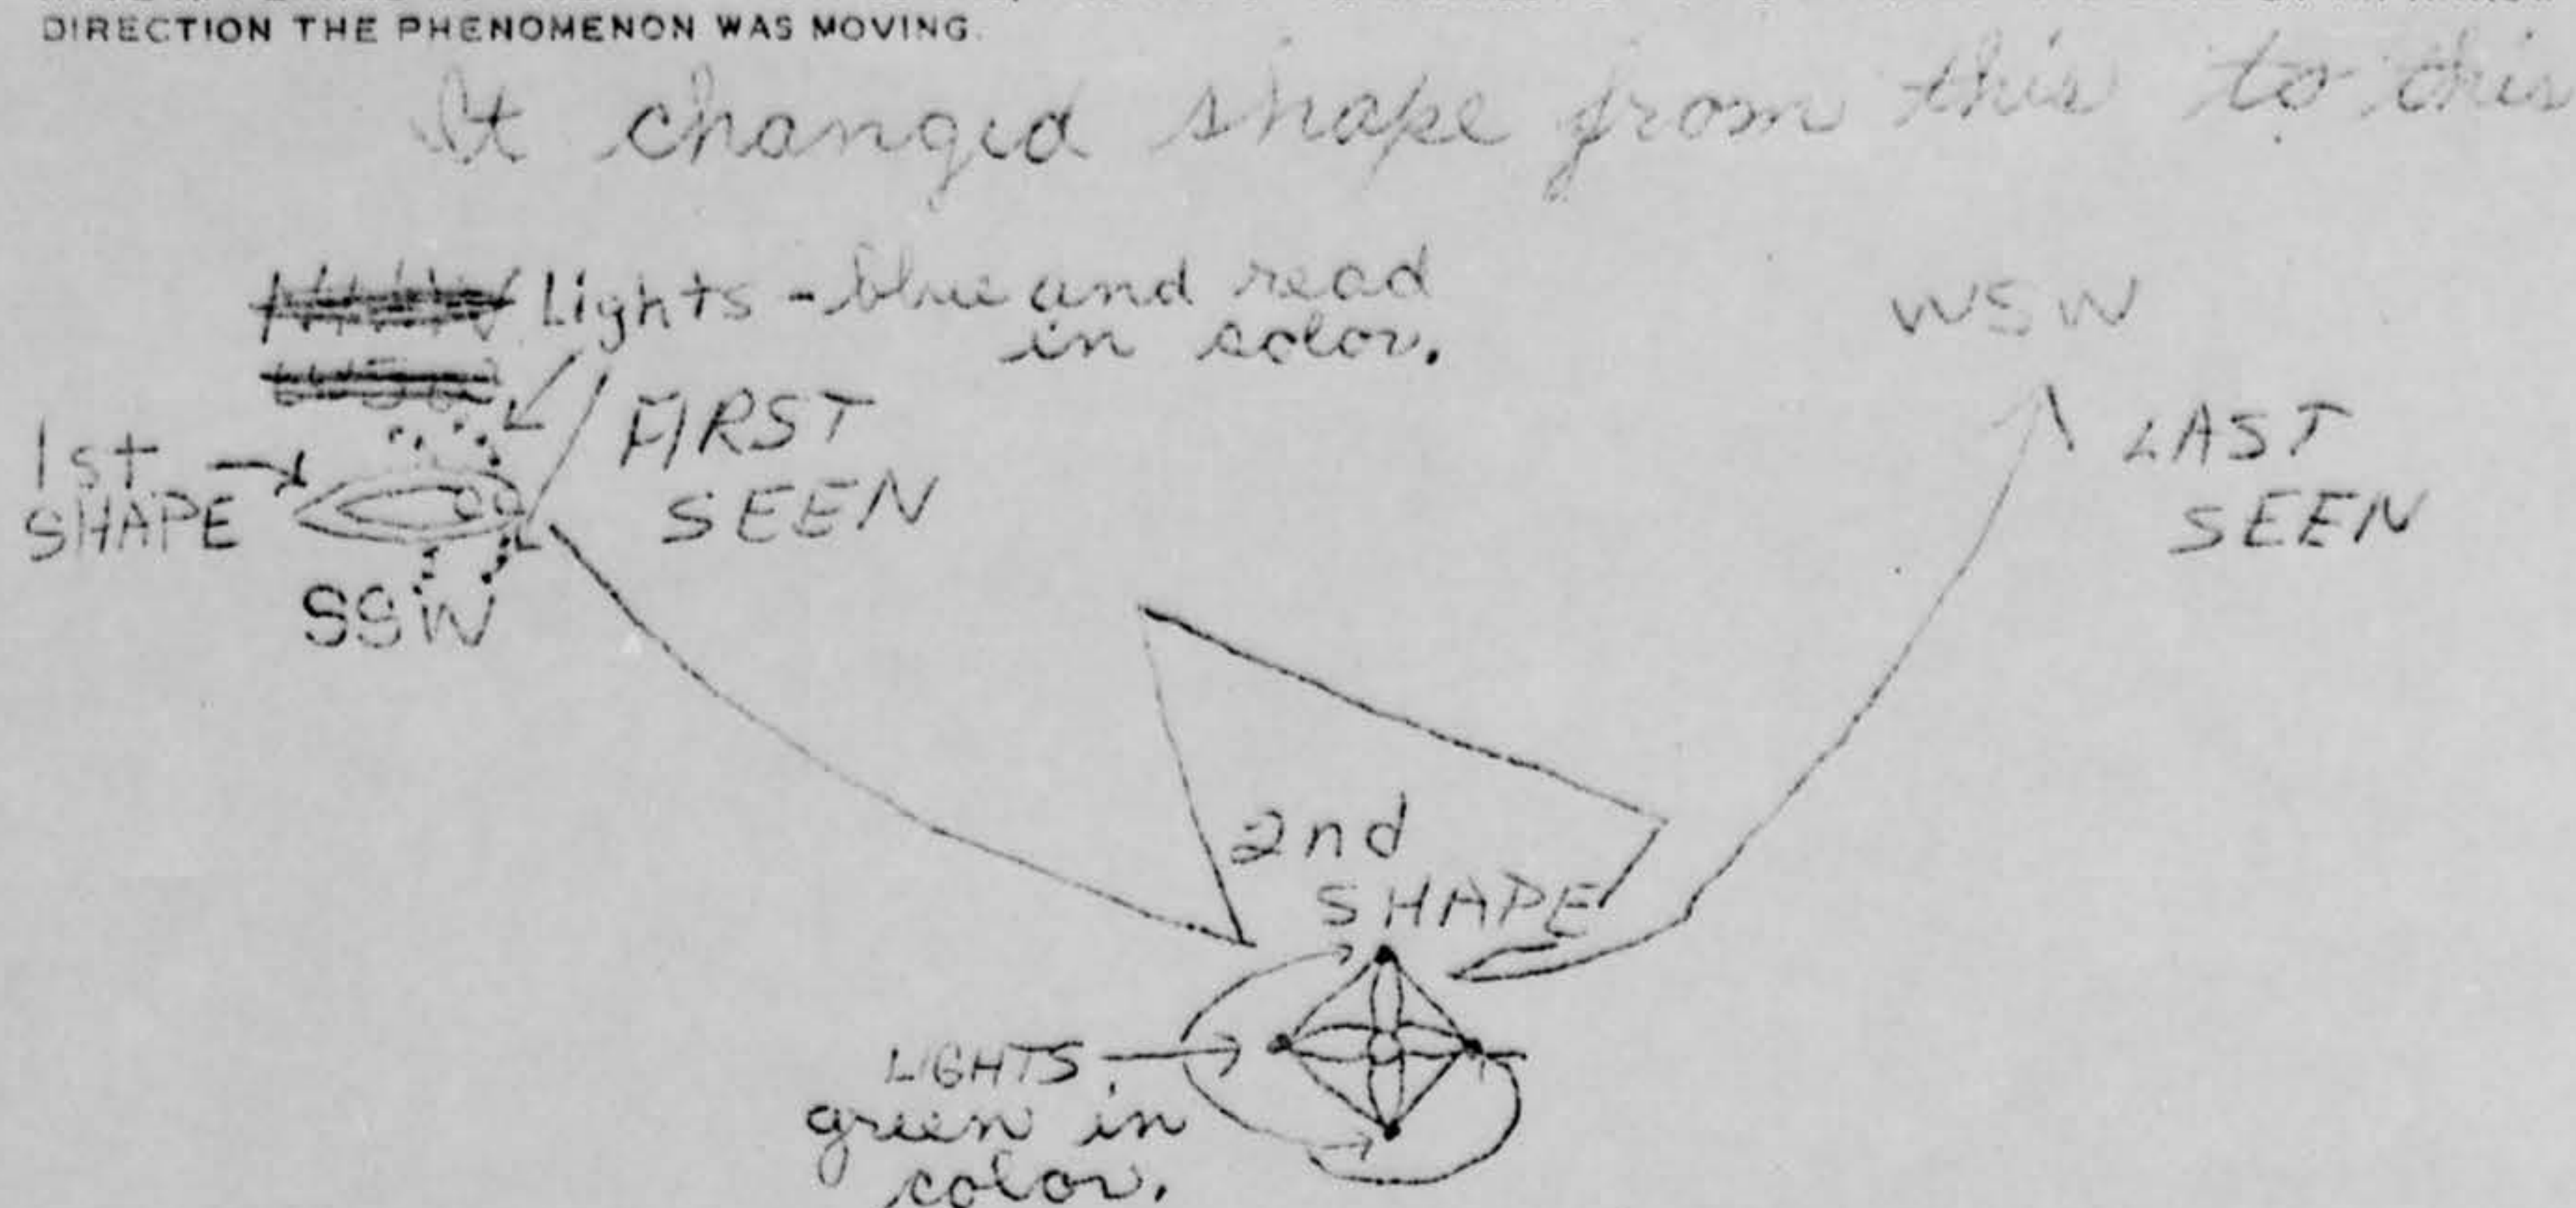 DIRECTION THE PHENOMENON WAS MOVING.
It changed shape from this to this
Lights - blue and read
in color.
WSW
1st
SHAPE
FIRST
SEEN
LAST
SEEN
SSW
2nd
SHAPE
LIGHTS,
green in
color.